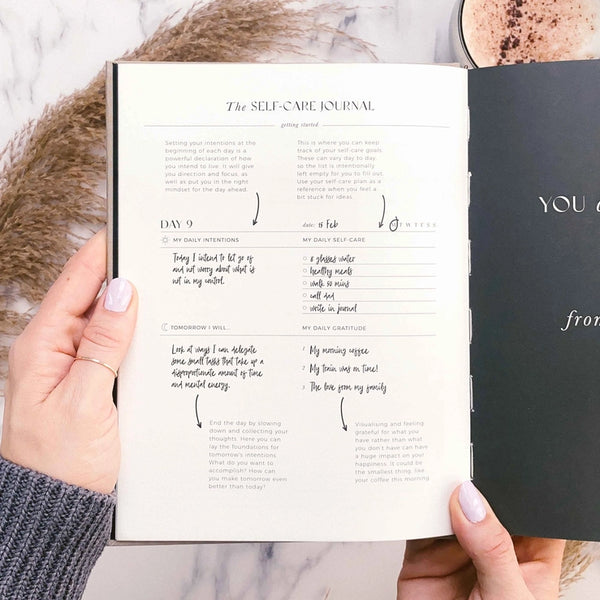 The SELF-CARE JOURNAL
getting started
Setting your intentions at the
beginning of each day is a
powerful declaration of how
you intend to live. It will give
you direction and focus, as
well as put you in the right
mindset for the day ahead.
This is where you can keep
track of your self care goals.
These can vary day to day,
so the list is intentionally
left empty for you to fill out.
Use your self-care plan as a
reference when you feel a
bit stuck for ideas.
DAY 9
date: 15 Feb
T W T F S S
MY DAILY INTENTIONS
Today I intend to let go of
and not worry about what is
not in my control.
MY DAILY SELF-CARE
8 glasses water
healthy meals
walk 30 mins
call dad
write in journal
TOMORROW I WILL...
Look at ways I can delegate
some small tasks that take up a
disproportionate amount of time
and mental energy.
MY DAILY GRATITUDE
1 My morning coffee
2 My train was on time!
3 The love from my family
End the day by slowing
down and collecting your
thoughts. Here you can
lay the foundations for
tomorrow's intentions.
What do you want to
accomplish? How can
you make tomorrow even
better than today?
Visualising and feeling
grateful for what you
have rather than what
you don't have can have
a huge impact on your
happiness. It could be
the smallest thing, like
your coffee this morning.
YOU
from